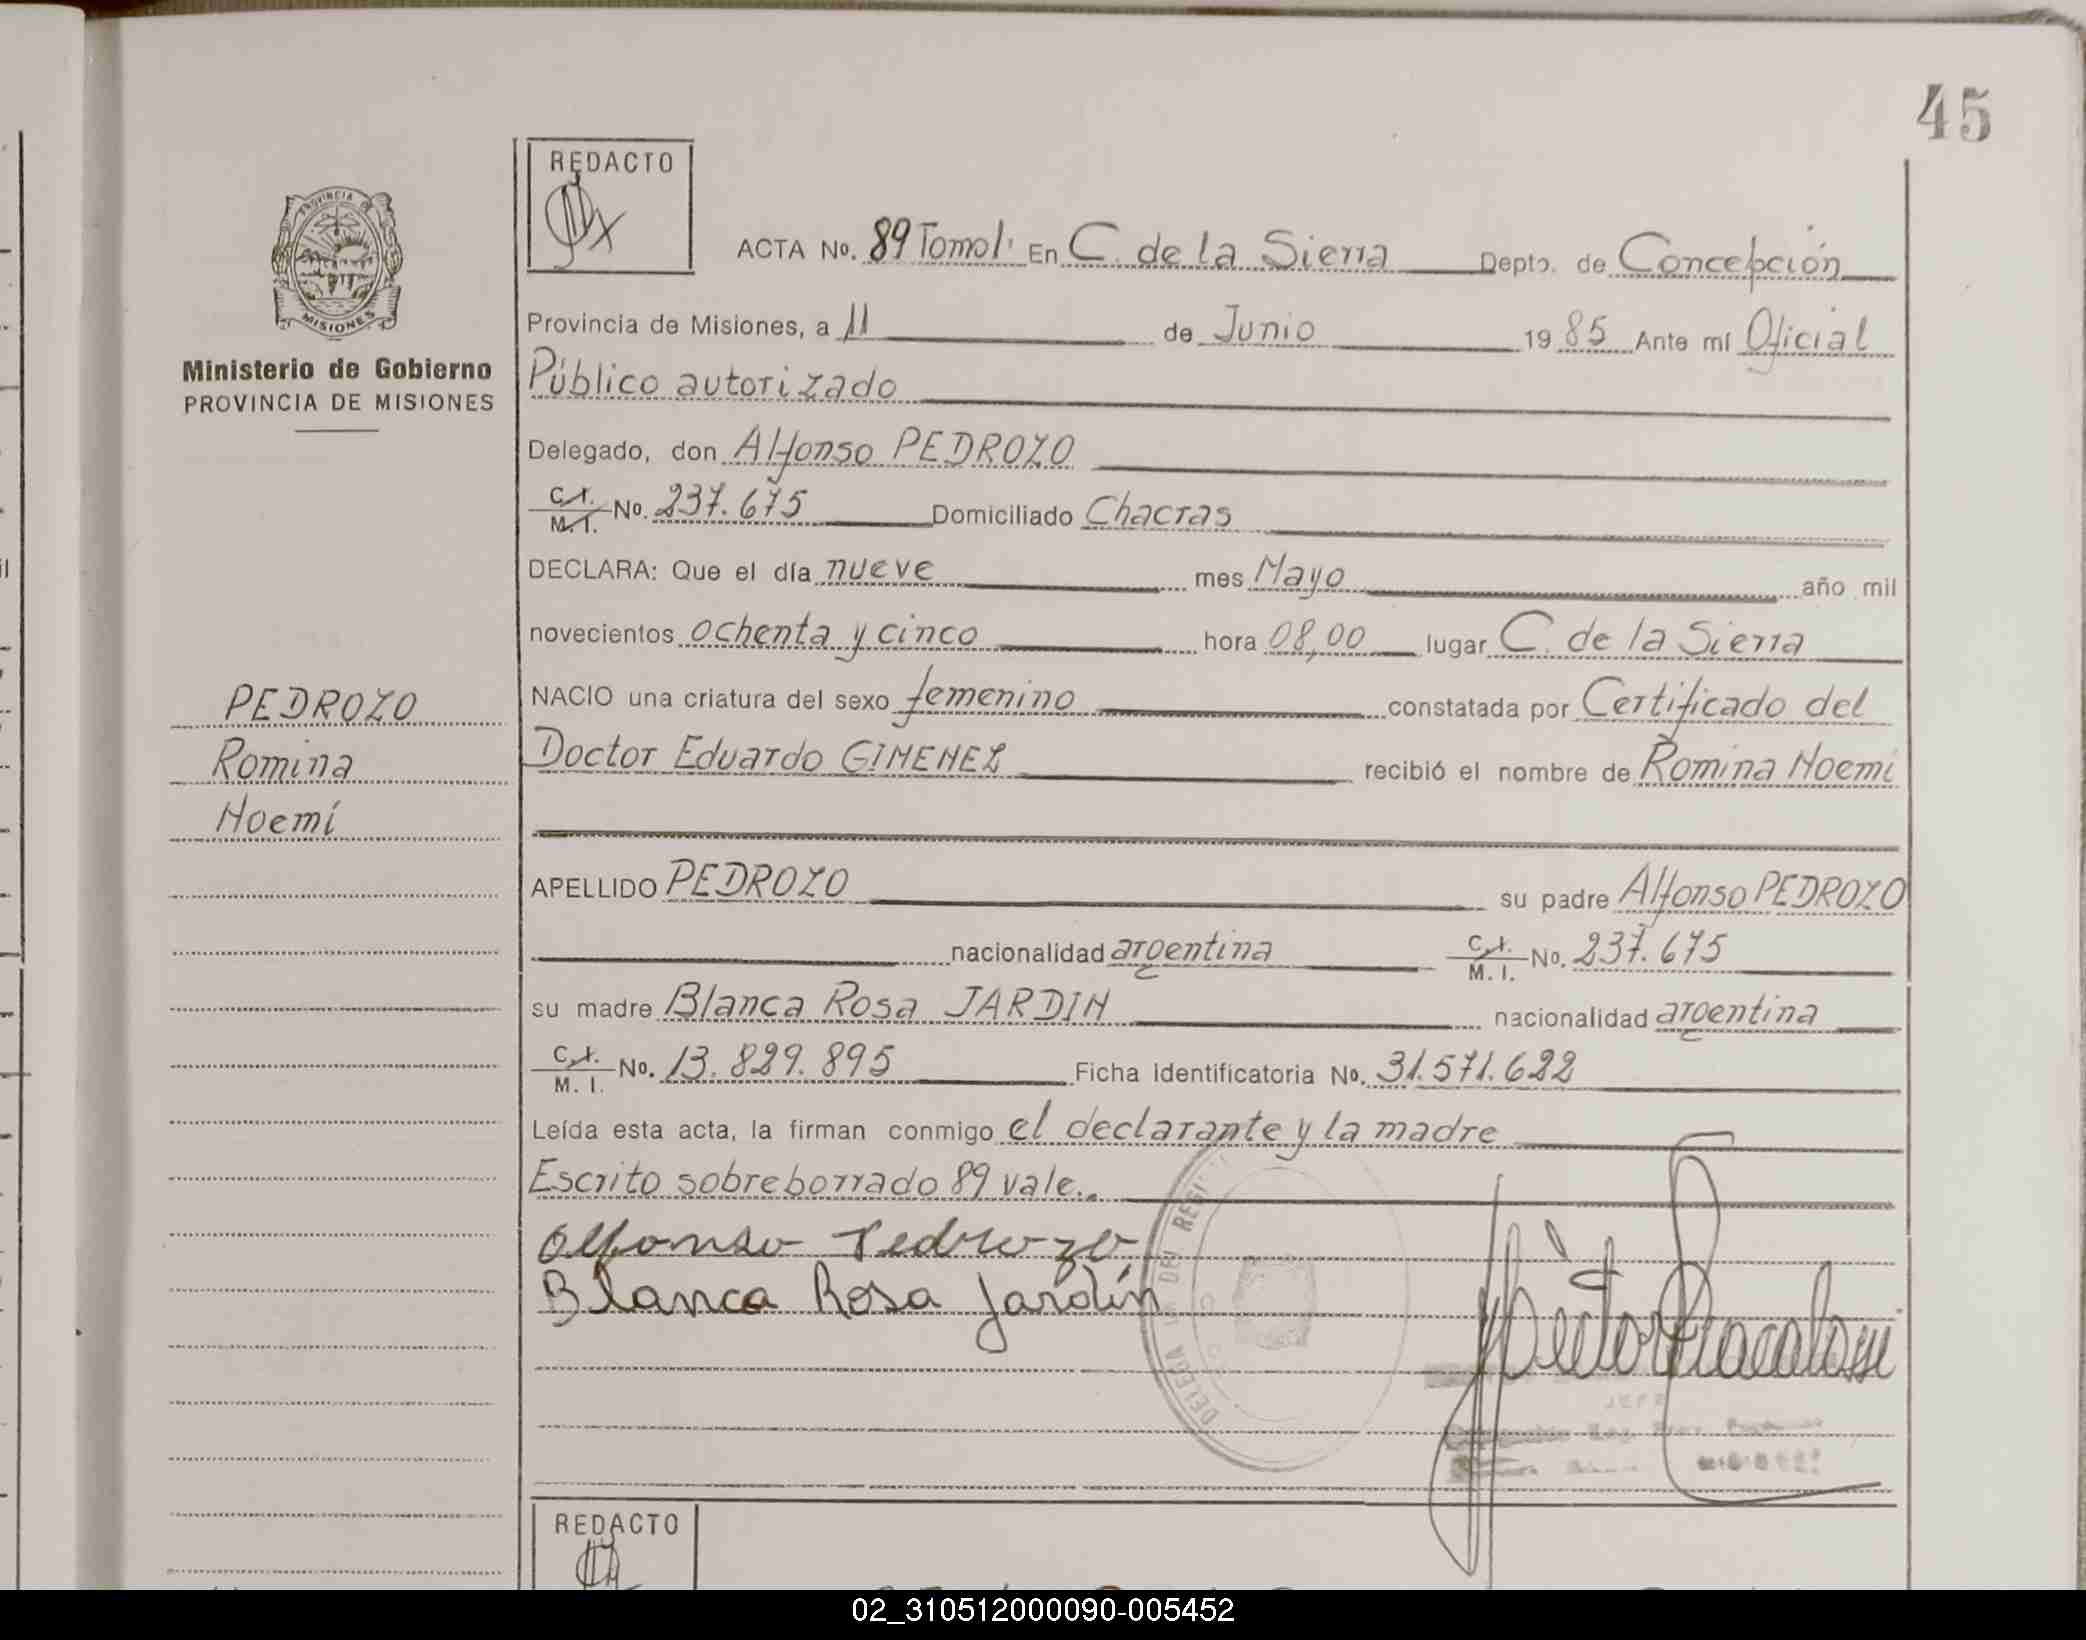 45
REDACTO
ACTA No. 89 Tomo I En C. de la Sierra Depto. de Concepción
PROVINCIA DE
MISIONES
Provincia de Misiones, a 11 de Junio 1985 Ante mí Oficial
Ministerio de Gobierno
PROVINCIA DE MISIONES
Público autorizado
Delegado, don Alfonso PEDROZO
C. I.
M. I. No. 237.675 Domiciliado Chacras
DECLARA: Que el día nueve mes Mayo año mil
novecientos ochenta y cinco hora 08,00 lugar C. de la Sierra
PEDROZO
Romina
Noemí
NACIO una criatura del sexo femenino constatada por Certificado del
Doctor Eduardo GIMENEZ recibió el nombre de Romina Noemí
APELLIDO PEDROZO su padre Alfonso PEDROZO
nacionalidad argentina C. I.
M. I. No. 237.675
su madre Blanca Rosa JARDIN nacionalidad argentina
C. I.
M. I. No. 13.829.895 Ficha Identificatoria No. 31.571.622
Leída esta acta, la firman conmigo el declarante y la madre
Escrito sobreborrado 89 vale.
Alfonso Pedrozo
Blanca Rosa Jardín
DEL REGI
JEFE
REDACTO
02_310512000090-005452